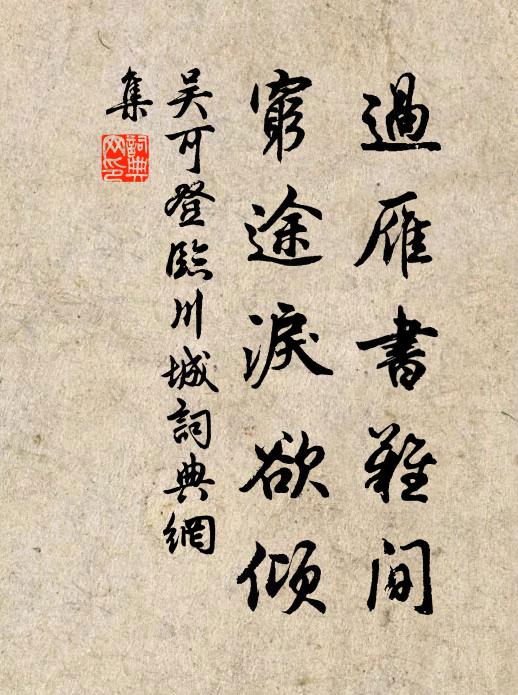 過雁書難間
窮途淚欲傾
吳可登臨川城詞典網
集
詞典
网印